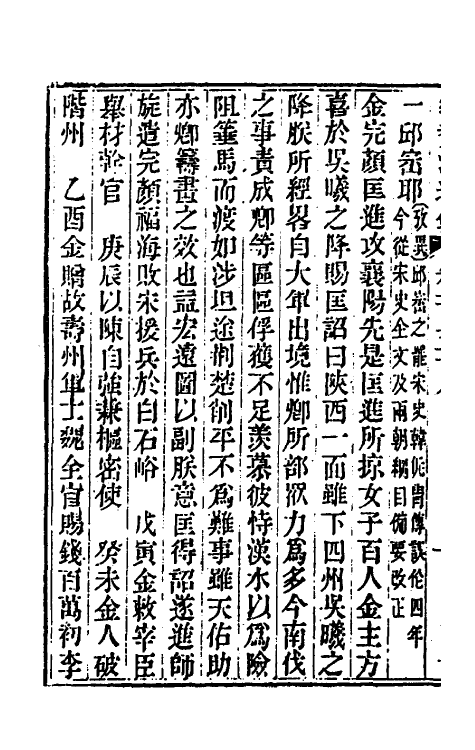 一邱崈耶(攷異邱崈之罷宋史韓侂胄傳誤佮四年
今從宋史全文及兩朝綱目備要改正
金完顏匡進攻襄陽先是匡進所掠女子百人金主方
喜於吳曦之降賜匡詔曰陝西一面雖下四州吳曦之
降朕所經畧自大軍出境惟卿所部衆力爲多今南伐
之事責成卿等區區俘獲不足羨慕彼恃漢水以爲險
阻箠馬而渡如涉坦途荆楚削平不爲難事雖天佑助
亦卿籌畫之效也益宏遠圖以副朕意匡得詔遂進師
旋遣完顏福海敗宋援兵於白石峪　戊寅金敕宰臣
舉材幹官　庚辰以陳自強兼樞密使　癸未金人破
階州　乙酉金贈故壽州軍士魏全官賜錢百萬初李